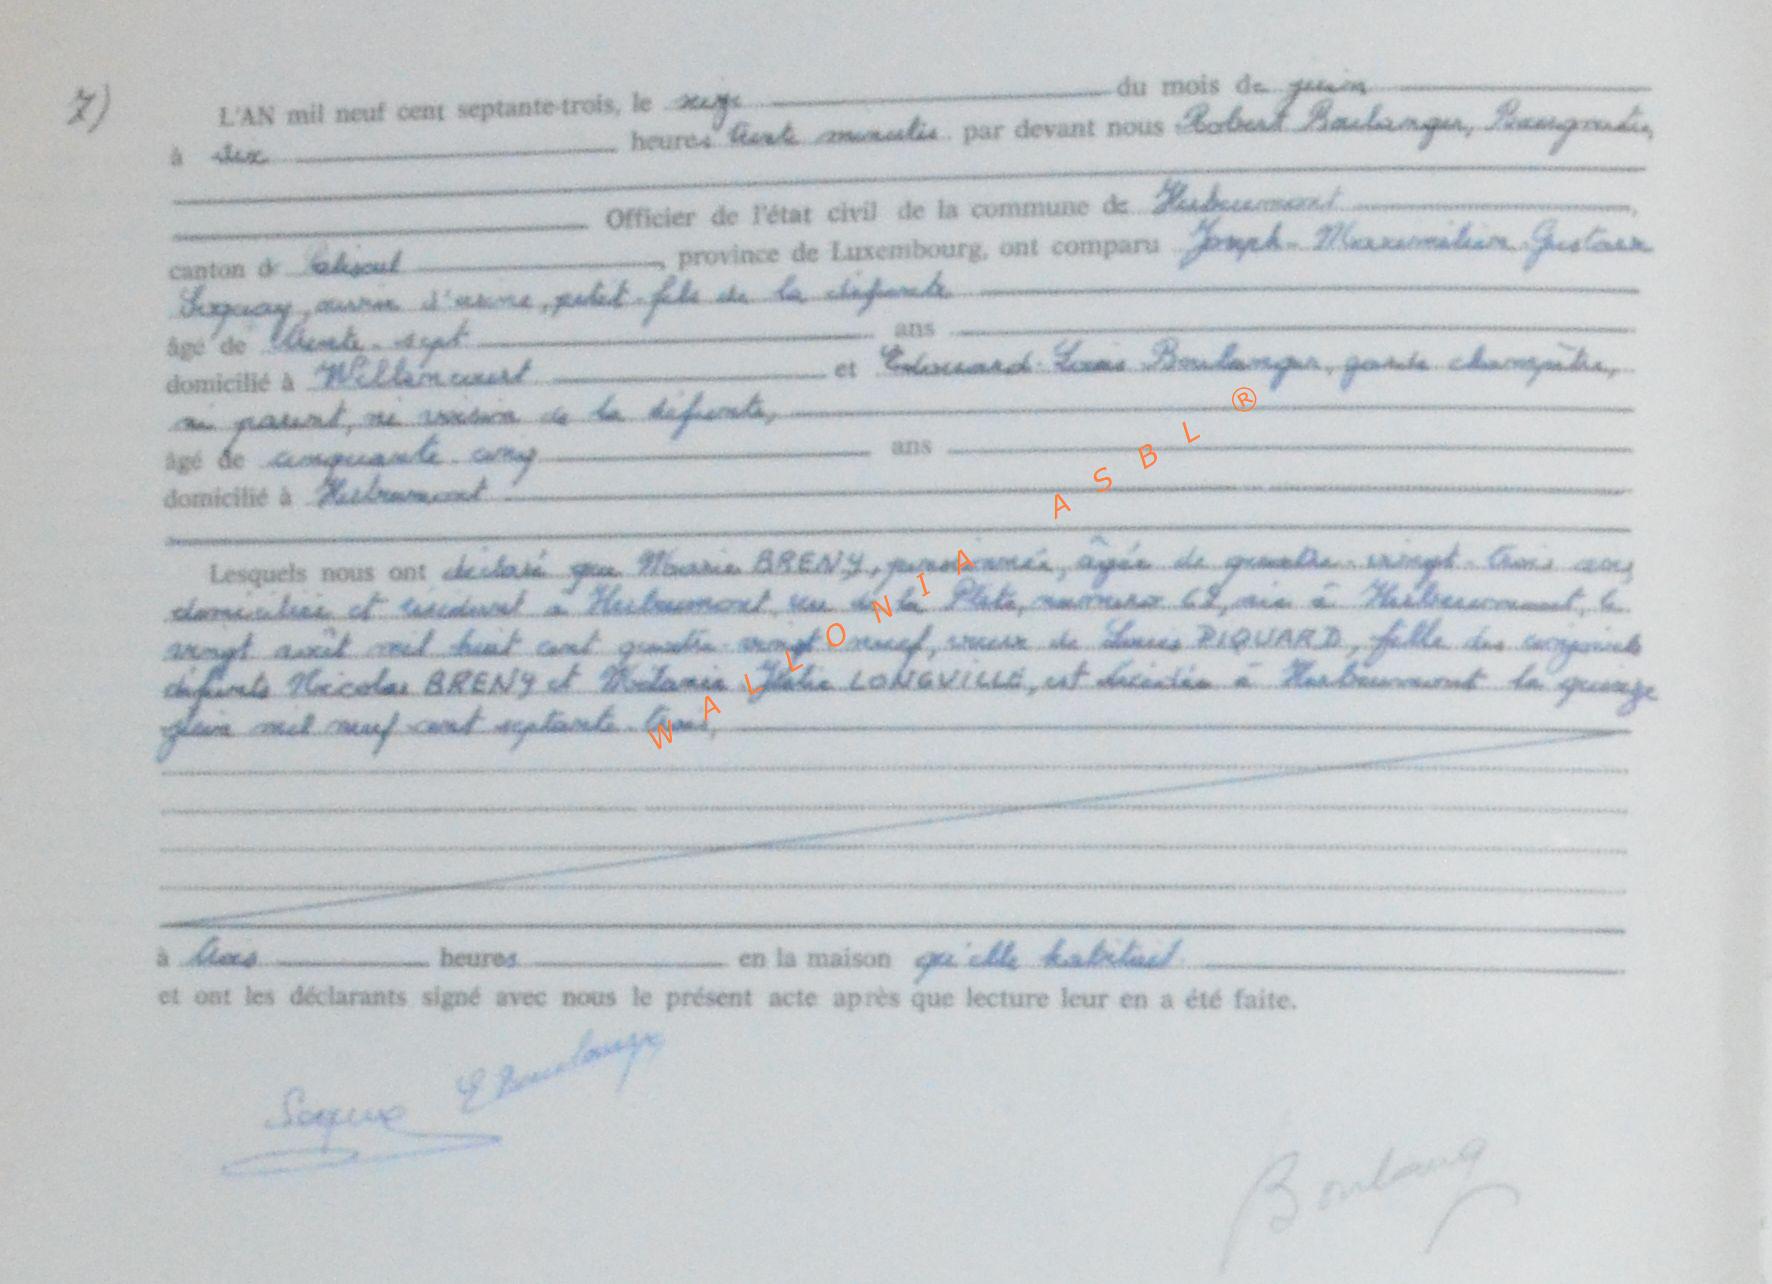 7)
L'AN mil neuf cent septante-trois, le seize du mois de juin
à dix heures trente minutes par devant nous Robert Boulanger, Bourgmestre,
Officier de l'état civil de la commune de Herbeumont,
canton de Paliseul, province de Luxembourg, ont comparu Joseph-Maximilien-Gustave
ouvrier d'usine, petit-fils de la défunte
âgé de trente-sept ans
domicilié à Willancourt et Edouard-Louis Boulanger, garde champêtre,
ni parent, ni voisin de la défunte,
âgé de cinquante-cinq ans
domicilié à Herbeumont
Lesquels nous ont déclaré que Marie BRENY, pensionnée, âgée de quatre-vingt-trois ans,
domiciliée et résidant à Herbeumont, rue de la Plate, numéro 62, née à Herbeumont, le
vingt août mil huit cent quatre-vingt-neuf, veuve de Louis PIQUARD, fille des conjoints
défunts Nicolas BRENY et Mélanie LONGVILLE, est décédée à Herbeumont le quinze
juin mil neuf cent septante-trois,
à trois heures en la maison qu'elle habitait
et ont les déclarants signé avec nous le présent acte après que lecture leur en a été faite.
E Boulanger
Boulang
WALLONIA ASBL ®